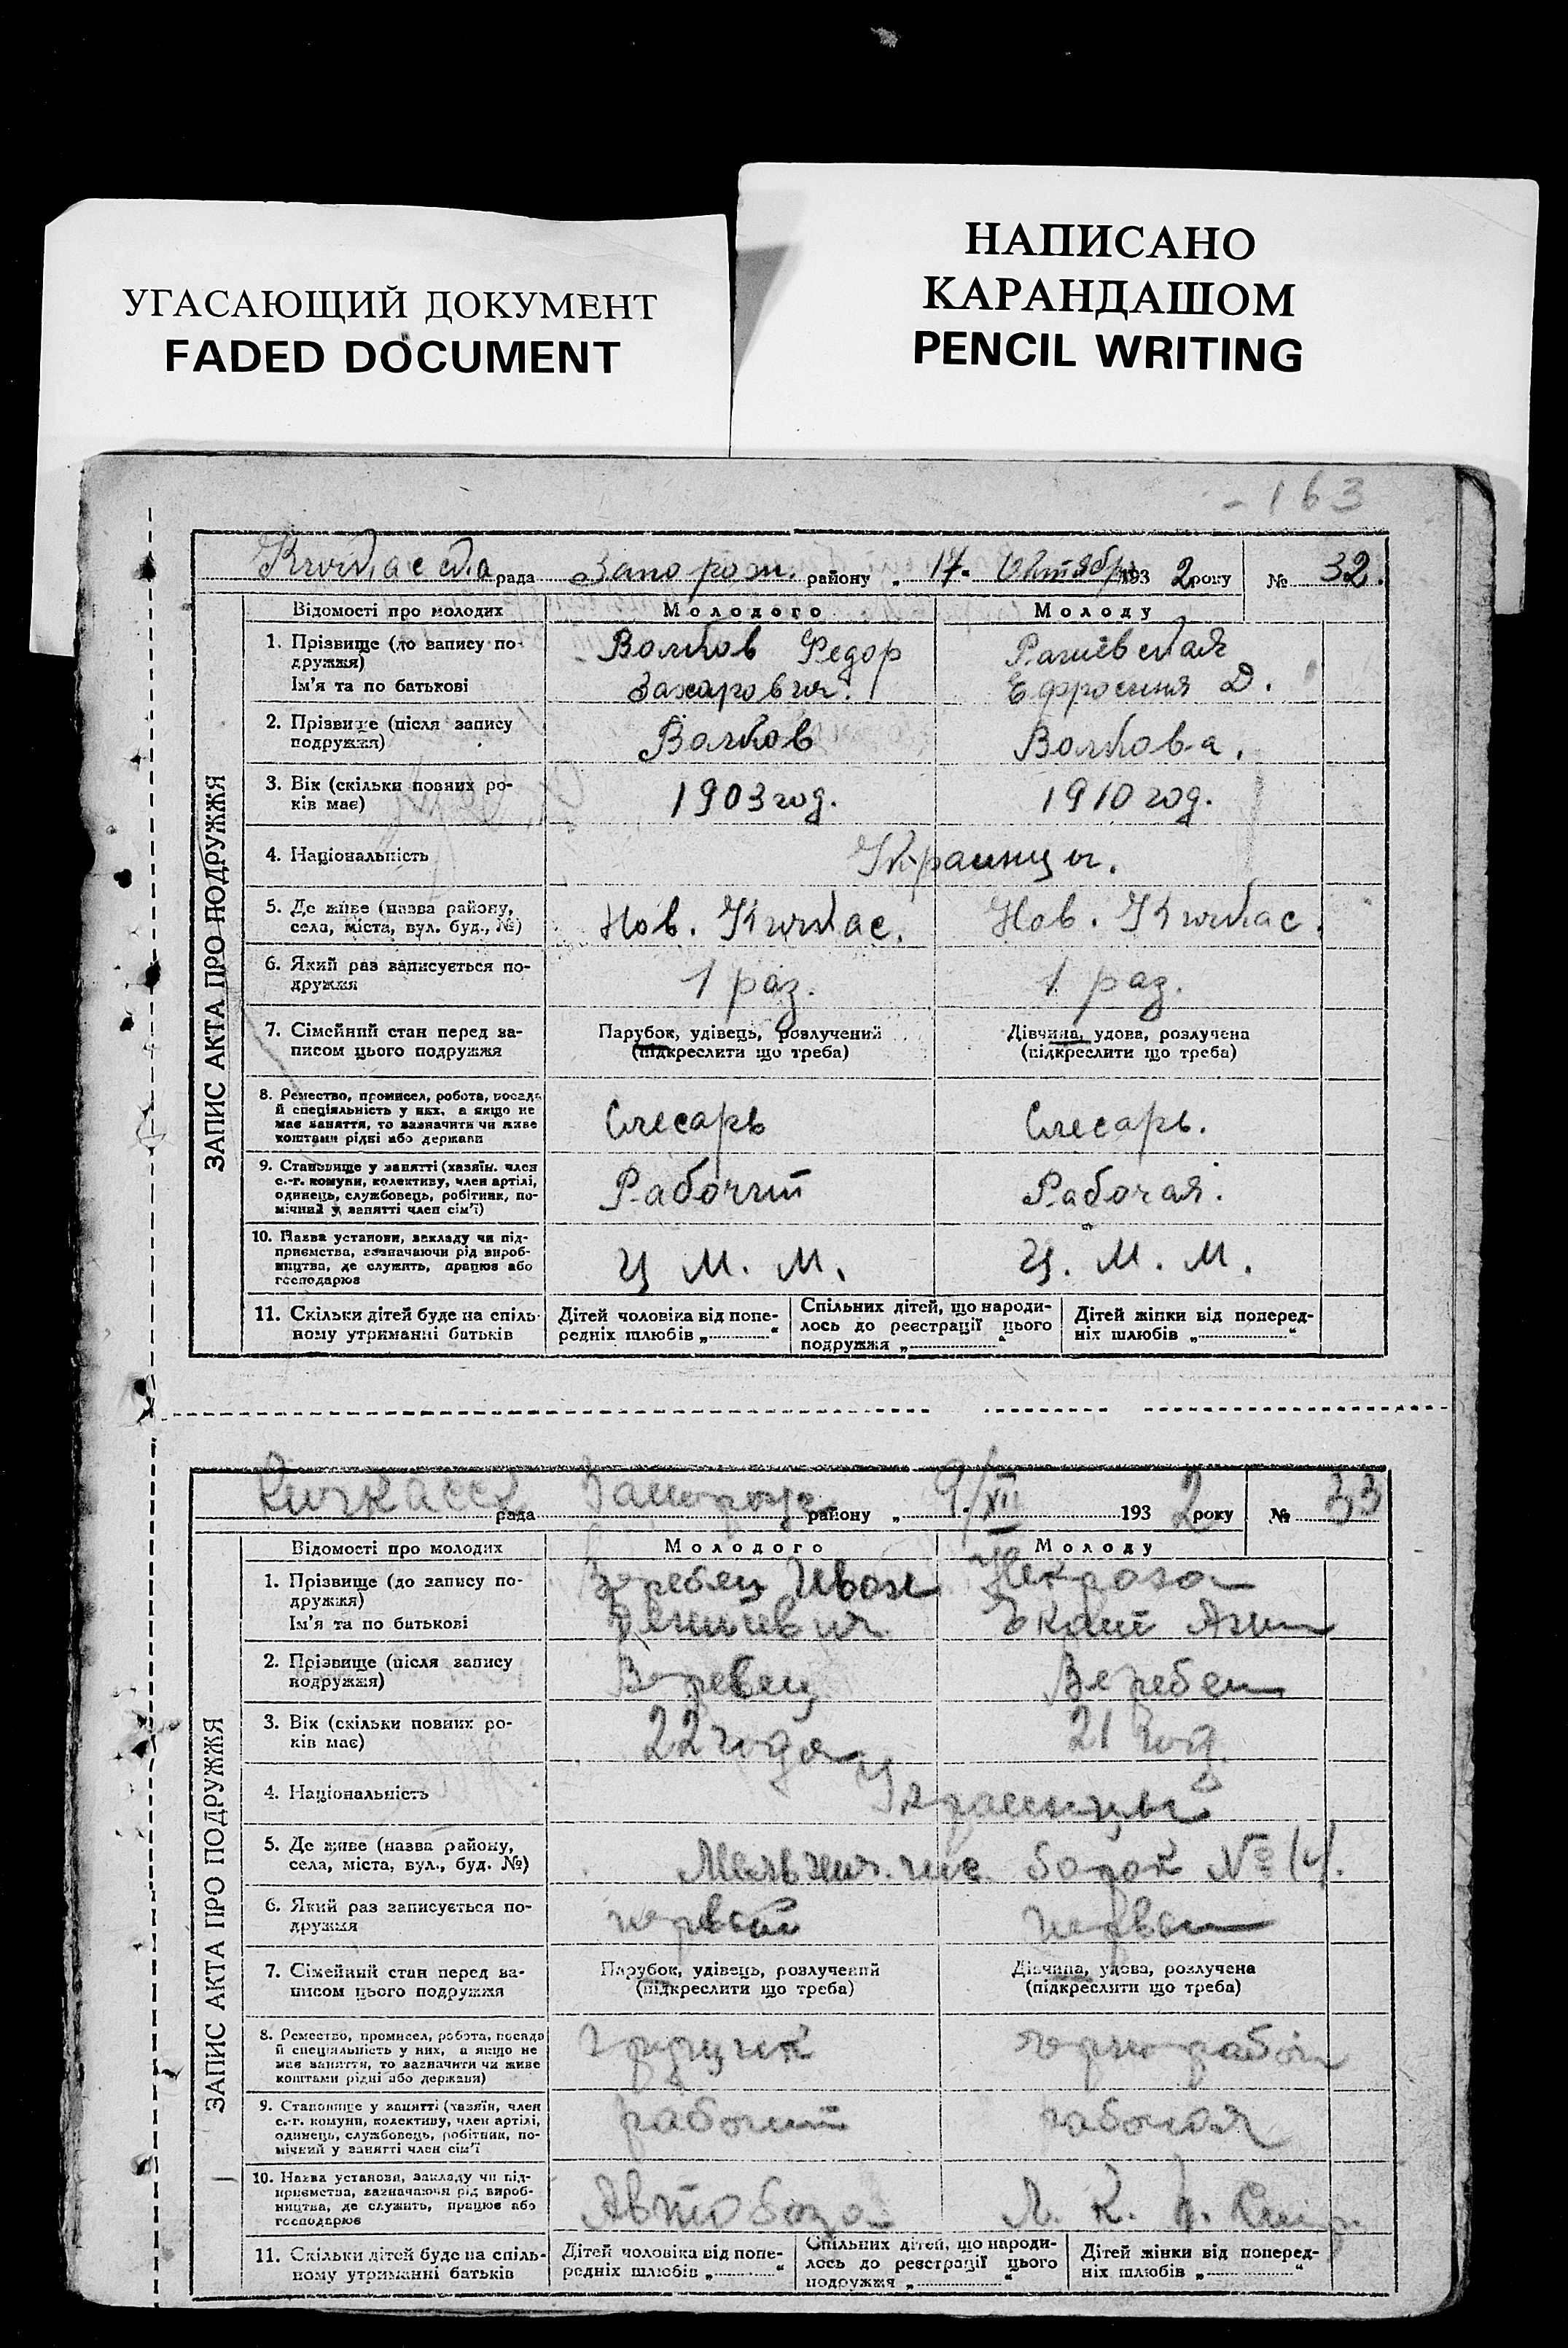 УГАСАЮЩИЙ ДОКУМЕНТ
FADED DOCUMENT
НАПИСАНО
КАРАНДАШОМ
PENCIL WRITING
- 163
рада Запорож. району „ 17. Октябр 193 2 року № 32.
ЗАПИС АКТА ПРО ПОДРУЖЖЯ
Відомості про молодих Молодого Молоду
1. Прізвище (до запису по-
дружжя)
Ім'я та по батькові
Волков Федор
Захарович.
Ефросиния Д.
2. Прізвище (після запису
подружжя)
Волков
Волкова.
3. Вік (скільки повних ро-
ків має)
1903 год.
1910 год.
4. Національність
Украинцы.
5. Де живе (назва району,
села, міста, вул. буд., №)
Нов. Кичкас.
Нов. Кичкас.
6. Який раз записується по-
дружжя
1 раз.
1 раз.
7. Сімейний стан перед за-
писом цього подружжя
Парубок, удівець, розлучений
(підкреслити що треба)
Дівчина, удова, розлучена
(підкреслити що треба)
8. Ремество, промисел, робота, посада
й спеціяльність у них, а якщо не
має заняття, то зазначити чи живе
коштами рідні або держави
Слесарь
Слесарь.
9. Становище у занятті (хазяїн. член
с.-г. комуни, колективу, член артілі,
одинець, службовець, робітник, по-
мічний у занятті член сім'ї)
Рабочий
Рабочая.
10. Назва установи, закладу чи під-
приємства, зазначаючи рід вироб-
ництва, де служить, працює або
господарює
Ц М. М.
Ц. М. М.
11. Скільки дітей буде на спіль-
ному утриманні батьків
Дітей чоловіка від попе-
редніх шлюбів „ “
Спільних дітей, що народи-
лось до реєстрації цього
подружжя „ “
Дітей жінки від поперед-
ніх шлюбів „ “
рада району „ 9/XII 193 2 року № 33
ЗАПИС АКТА ПРО ПОДРУЖЖЯ
Відомості про молодих Молодого Молоду
1. Прізвище (до запису по-
дружжя)
Ім'я та по батькові
Иван
2. Прізвище (після запису
подружжя)
3. Вік (скільки повних ро-
ків має)
22 года
21 год
4. Національність
Украинцы
5. Де живе (назва району,
села, міста, вул., буд. №)
барак №
6. Який раз записується по-
дружжя
первый
7. Сімейний стан перед за-
писом цього подружжя
Парубок, удівець, розлучений
(підкреслити що треба)
Дівчина, удова, розлучена
(підкреслити що треба)
8. Ремество, промисел, робота, посада
й спеціяльність у них, а якщо не
має заняття, то зазначити чи живе
коштами рідні або держави)
Грузчик
9. Становище у занятті (хазяїн, член
с.-г. комуни, колективу, член артілі,
одинець, службовець, робітник, по-
мічний у занятті член сім'ї
рабочий
рабочая
10. Назва установи, закладу чи під-
приємства, зазначаючи рід вироб-
ництва, де служить, працює або
господарює
Автобаза
11. Скільки дітей буде на спіль-
ному утриманні батьків
Дітей чоловіка від попе-
редніх шлюбів „ “
Спільних дітей, що народи-
лось до реєстрації цього
подружжя „ “
Дітей жінки від поперед-
ніх шлюбів „ “